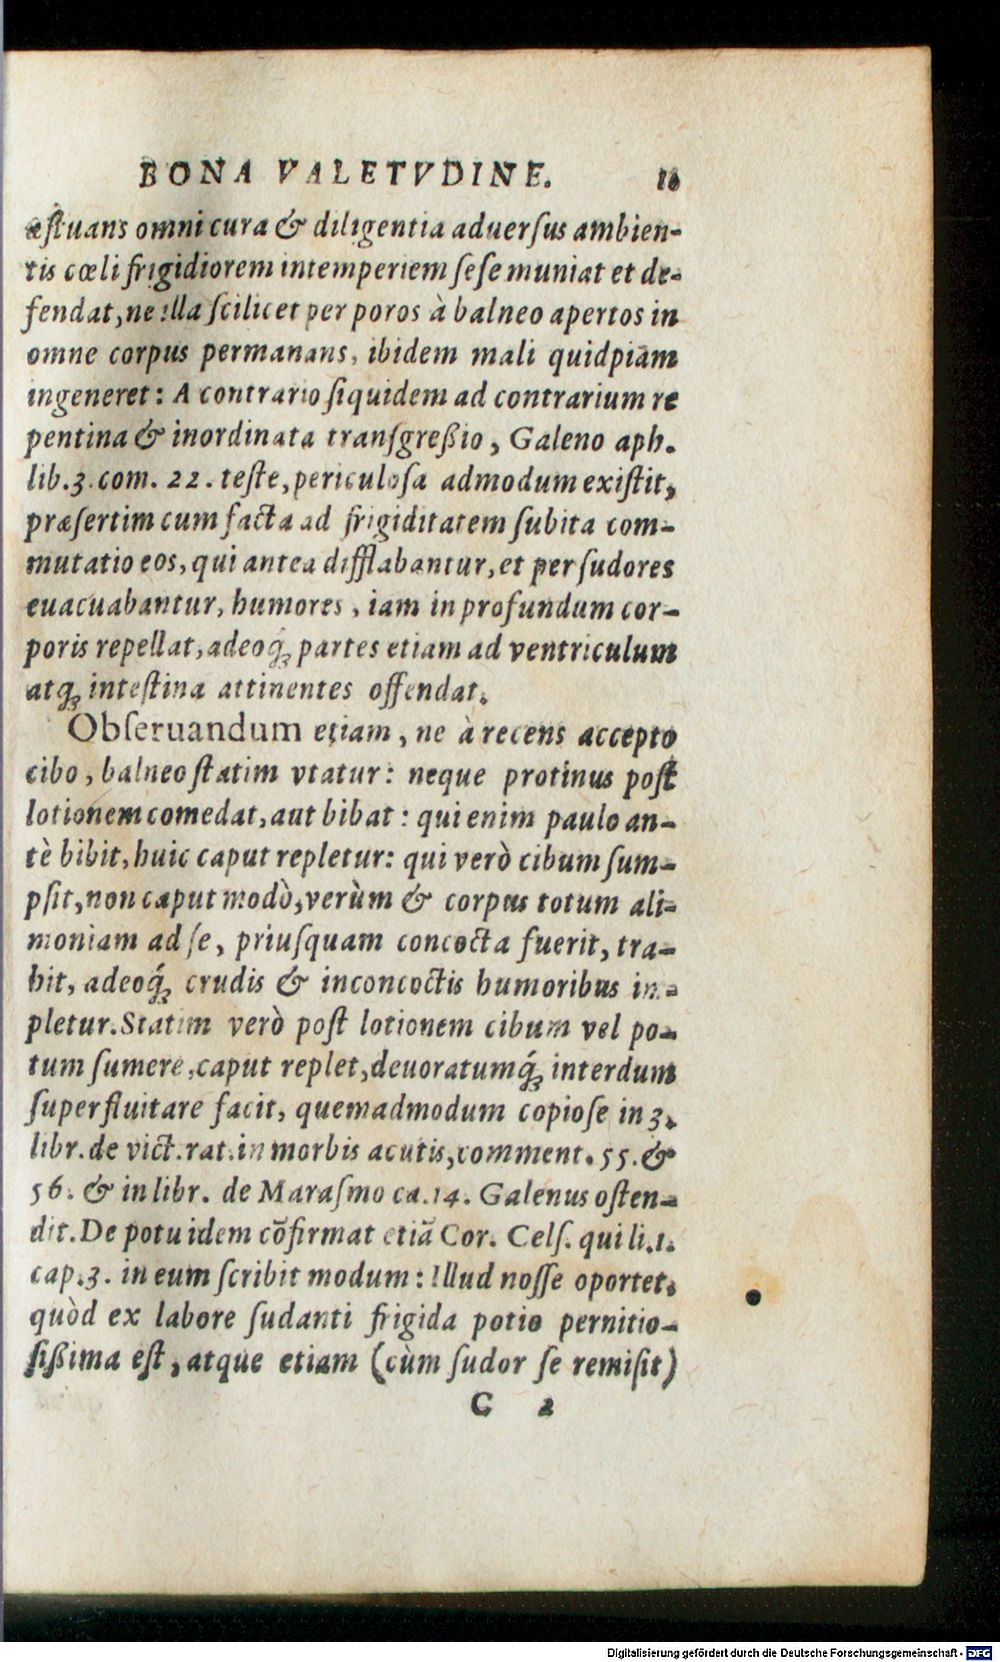 BONA VALETVDINE. 18
æſtuans omni cura & diligentia aduerſus ambien-
tis cœli frigidiorem intemperiem ſeſe muniat et de-
fendat, ne illa ſcilicet per poros à balneo apertos in
omne corpus permanans, ibidem mali quidpiam
ingeneret: A contrario ſiquidem ad contrarium re
pentina & inordinata tranſgreßio, Galeno aph.
lib. 3. com. 22. teſte, periculoſa admodum exiſtit,
præſertim cum facta ad frigiditatem ſubita com-
mutatio eos, qui antea difflabantur, et per ſudores
euacuabantur, humores, iam in profundum cor-
poris repellat, adeoq́ꝫ partes etiam ad ventriculum
atqꝫ inteſtina attinentes offendat.
Obſeruandum etiam, ne à recens accepto
cibo, balneo ſtatim vtatur: neque protinus poſt
lotionem comedat, aut bibat: qui enim paulo an-
tè bibit, huic caput repletur: qui verò cibum ſum-
pſit, non caput modò, verùm & corpus totum ali-
moniam ad ſe, priuſquam concocta fuerit, tra-
hit, adeoq́ꝫ crudis & inconcoctis humoribus im-
pletur. Statim verò poſt lotionem cibum vel po-
tum ſumere, caput replet, deuoratumq́ꝫ interdum
ſuperfluitare facit, quemadmodum copioſe in 3.
libr. de vict. rat. in morbis acutis, comment. 55. &
56. & in libr. de Maraſmo ca. 14. Galenus oſten-
dit. De potu idem cõfirmat etiã Cor. Celſ. qui li. 1.
cap. 3. in eum ſcribit modum: Illud noſſe oportet,
quòd ex labore ſudanti frigida potio pernitio-
ſißima eſt, atque etiam (cùm ſudor ſe remiſit)
C 2
Digitalisierung gefördert durch die Deutsche Forschungsgemeinschaft - DFG